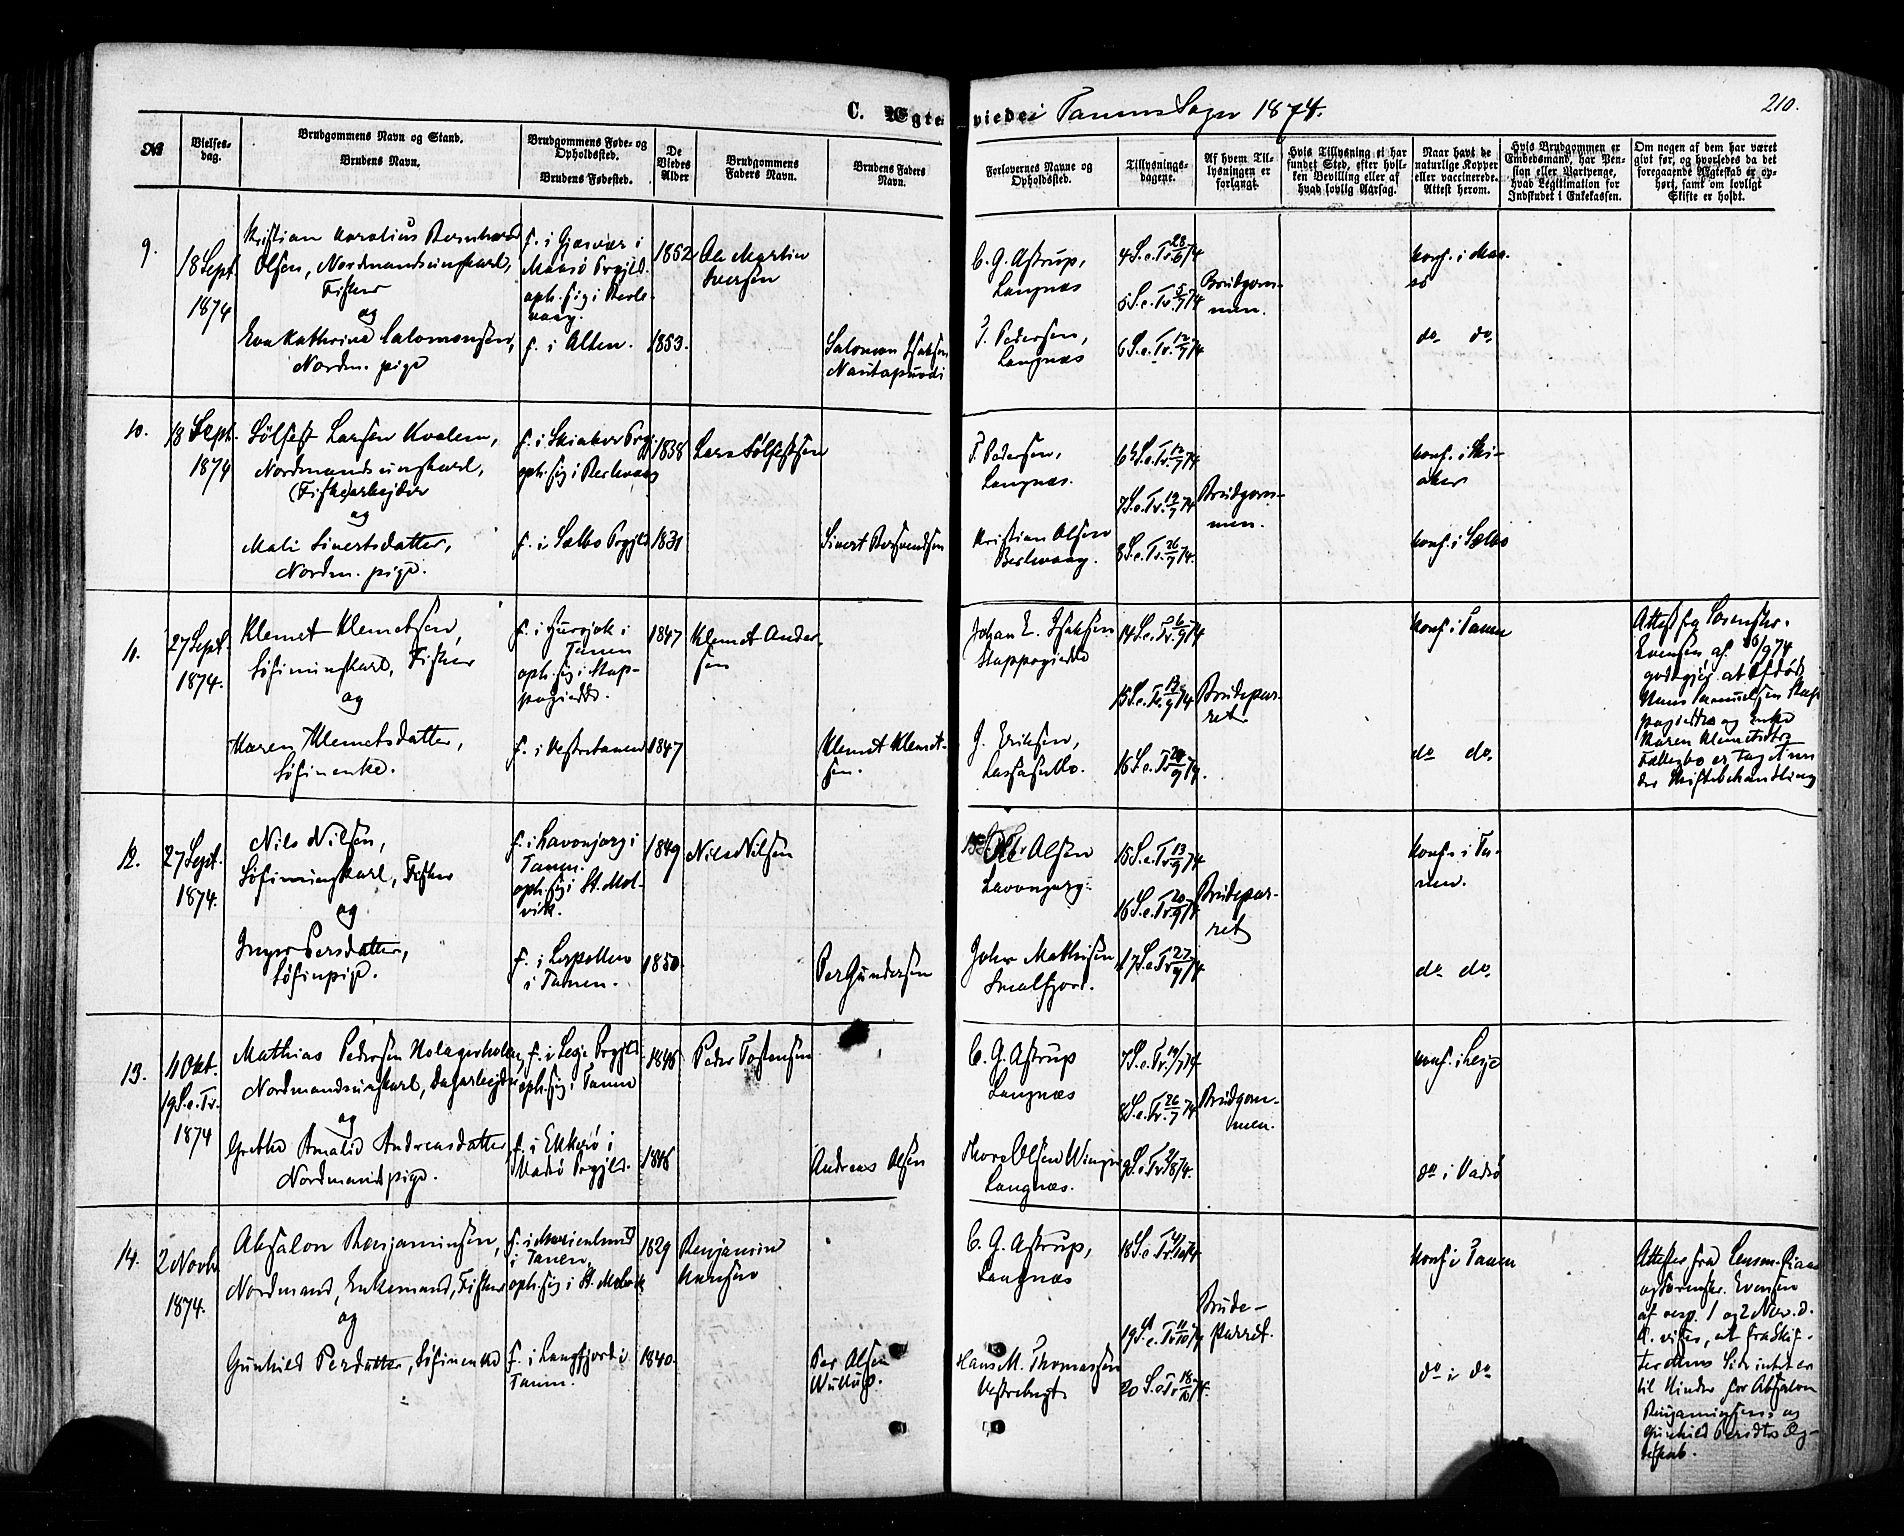 C. Ægteviede i Tanens Sogn 1874.
210.
No
Vielses-
dag.
Brudgommens Navn og Stand.
Brudens Navn.
Brudgommens Føde- og
Opholdssted.
Brudens Fødested.
De
Viedes
Alder
Brudgommens
Faders Navn.
Brudens Faders
Navn.
Forlovernes Navne og
Opholdssted.
Tillysnings-
dagene.
Af hvem Til-
lysningen er
forlangt.
Hvis Tillysning ei har
fundet Sted, efter hvil-
ken Bevilling eller af
hvad lovlig Aarsag.
Naar havt de
naturlige Kopper
eller vaccinerede.
Attest herom.
Hvis Brudgommen er
Embedsmand, har Pen-
sion eller Vartpenge,
hvad Legitimation for
Indskudet i Enkekassen.
Om nogen af dem har været
givt før, og hvorledes da det
foregaaende Ægteskab er op-
hørt, samt om lovligt
Skifte er holdt.
9.
18 Sept.
1874
Kristian Karolius Bernhard
Olsen, Nordmandsungkarl,
Fisker
og
Eva Kathrine Salomonsen,
Nordm. pige
f. i Gjesvær i
Maasø Prgjld.
oph. sig i Berle-
vaag.
f. i Alten.
1852
1853.
Ole Martin
Iversen
Salomon Isaksen
Nautapuodi
C. G. Astrup,
Langnæs
J. Pedersen,
Langnæs
4 S. e. Tr. 28/6 74
5 S. e. Tr. 5/7 74
6 S. e. Tr. 12/7 74
Brudgom-
men.
konf. i Maa-
sø
do do.
10.
18 Sept.
1874
Sølfest Larsen Kvalem,
Nordmandsungkarl,
(Fiske)arbejder
og
Mali Sivertsdatter,
Nordm. pige.
f. i Skiaker Prgj.
oph. sig i Berlevaag
f. i Sælbo Prgjld.
1838
1831
Lars Sølfestsen
Sivert Bersvendsen
J. Pedersen,
Langnæs.
Kristian Olsen
Berlevaag.
6 S. e. Tr. 12/7 74
7 S. e. Tr. 19/7 74
8 S. e. Tr. 26/7 74.
Brudgom-
men.
konf. i Ski-
aker
konf. i Sælbo
11.
27 Sept.
1874.
Klemet Klemetsen,
Søfinungkarl, Fisker
og
Karen Klemetsdatter,
Søfinenke.
f. i
Tanen
oph. sig i Stap-
pogiedde.
f. i Vestretanen
1847
1847
Klemet Ander-
sen
Klemet Klemet-
sen.
Johan E. Isaksen
Stappogiedde
G. Eriksen,
14 S. e. Tr. 6/9 74
15 S. e. Tr. 13/9 74
16 S. e. Tr. 20/9 74.
Brudepar-
ret
konf. i Tanen
do do.
Attest fra Sorenskr.
Evensen af 16/9 74
godtgjør at Afdøde
Hans Samuelsen Stap-
pogiedde og Enke
Karen Klemetsdtr
Fællesbo er taget un-
der Skiftebehandling
12.
27 Sept.
1874.
Nils Nilsen,
Søfinungkarl, Fisker
og
Inger Persdatter,
Søfinpige.
f. i Lavonjarg i
Tanen.
oph. sig i St. Mol-
vik.
f. i Lerpollen
i Tanen.
1849
1850
Nils Nilsen
Per Gundersen
Ole Olsen
Lavonjarg.
John Mathisen
Smalfjord.
15 S. e. Tr. 13/9 74
16 S. e. Tr. 20/9 74
17 S. e. Tr. 27/9 74.
Brudepar-
ret
konf. i Ta-
nen.
do do.
13.
4 Okt.
19 S. e. Tr.
1874
Mathias Pedersen Holagerholen,
Nordmandsungkarl, Dagarbejder
og
Grethe Amalie Andreasdatter,
Nordmandspige.
f. i Lesje Prgjld.
oph. sig i Tanen
f. i Ekkerø i
Vadsø Prgjld.
1848
1848
Peder Tostensen
Andreas Olsen
C. G. Astrup
Langnæs
Thore Olsen
Langnæs.
7 S. e. Tr. 19/7 74
8 S. e. Tr. 26/7 74
9 S. e. Tr. 2/8 74.
Brudgom-
men.
konf. i Lesje
do i Vadsø
14.
2 Novb.
1874.
Absalon Benjaminsen,
Nordmand, Enkemand, Fisker
og
Gunhild Persdatter, Søfinenke
f. i Marienlund
i Tanen,
oph. sig i St. Molvik
f. i Langfjord i
Tanen.
1829
1840.
Benjamin
Hansen
Per Olsen
C. G. Astrup,
Langnæs
Hans M. Thomassen
Vestrebugt
18 S. e. Tr. 4/10 74
19 S. e. Tr. 11/10 74
20 S. e. Tr. 18/10 74.
Brude-
parret.
konf. i Tanen
do i do
Attester fra Lensm.
og Sorenskr. Evensen
af resp. 1 og 2 Nov. d.
A. vises, at fra Skif-
tets Side intet er
til Hinder for Absalon
Benjaminsens og
Gunhild Persdtrs Æg-
teskab.